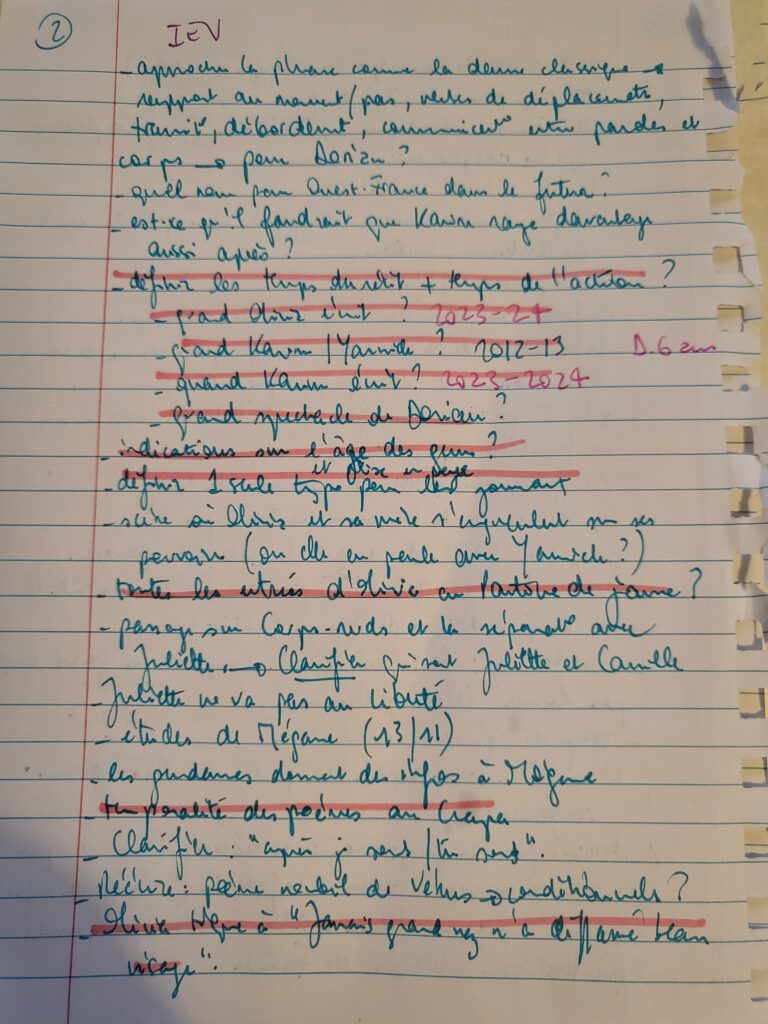 2 IEV
- approcher la phrase comme la danse classique →
rapport au mouvt/pas, verbes de déplacements,
transit°, débordemt, communicat° entre paroles et
corps → pour Dorian ?
- quel nom pour Ouest-France dans le futur ?
- est-ce qu'il faudrait que Karim rage davantage
aussi après ?
- définir les temps du récit + temps de l'action ?
- quand Olivia écrit ? 2023-24
- quand Karim / Yannick ? 2012-13 D. 6 ans
- quand Karim écrit ? 2023-2024
- quand spectacle de Dorian ?
- indications sur l'âge des gens ?
et mise en page
- définir 1 seule typo pour les journaux
- scène où Olivia et sa mère s'engueulent sur ses
(ou elle en parle avec Yannick ?)
- toutes les entrées d'Olivia en Pantone de jaune ?
- passage sur Corps-nuds et la séparat° avec
Juliette. → Clarifier qui sont Juliette et Camille
- Juliette ne va pas au Liberté
- études de Mégane (13/11)
- les gendarmes donnent des infos à Mégane
- temporalité des poèmes au
- Clarifier : "après je sens / tu sens".
- Réécrire : poème de Vénus → conditionnels ?
- Olivia à "Jamais grand nez n'a diffamé beau
visage".